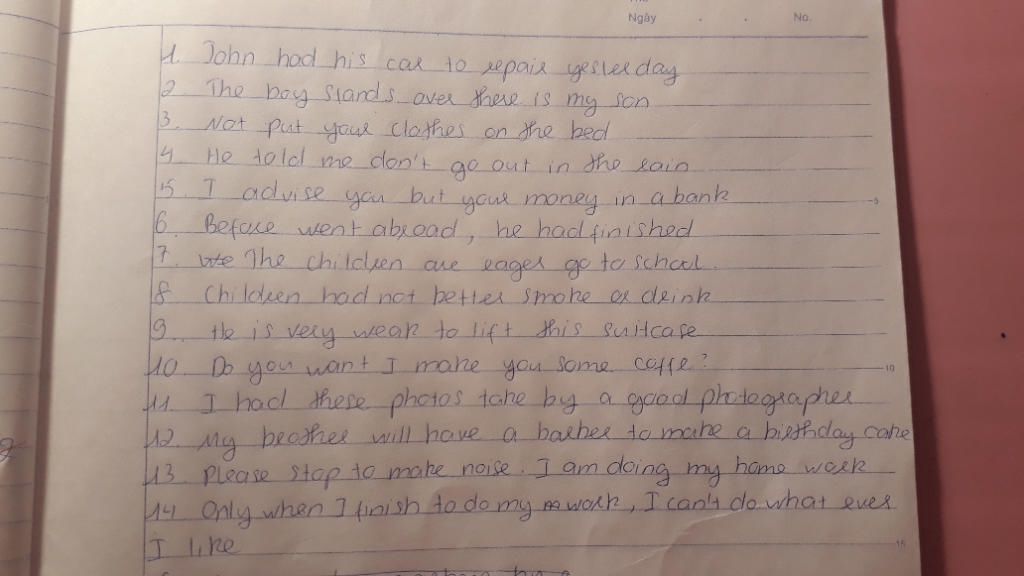 Ngày . . No.
1. John had his car to repair yesterday
2. The boy stands over there is my son
3. Not put your clothes on the bed
4. He told me don't go out in the rain
5. I advise you but your money in a bank
6. Before went abroad, he had finished
7. The children are eager go to school.
8. Children had not better smoke or drink
9. He is very weak to lift this suitcase
10. Do you want I make you some coffe?
11. I had these photos take by a good photographer
12. My brother will have a barber to make a birthday cake
13. Please stop to make noise. I am doing my home work
14. Only when I finish to do my work, I can't do what ever
I like